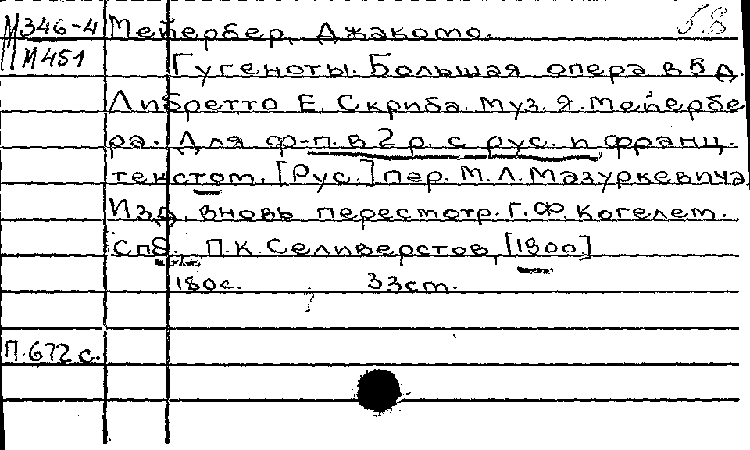 М346-4 Мейербер, Джакомо. 58
М451
Гугеноты. Большая опера в 5 д.
Либретто Е. Скриба. Муз. Я. Мейербе
ра. Для ф-п. в 2 р. с рус. и франц.
текстом. [Рус.] пер. М.Л. Мазуркевича
Изд. вновь пересмотр. Г.Ф. Когелем.
Спб., П.К. Селиверстов, [1800]
180с. 33см.
П.672 с.